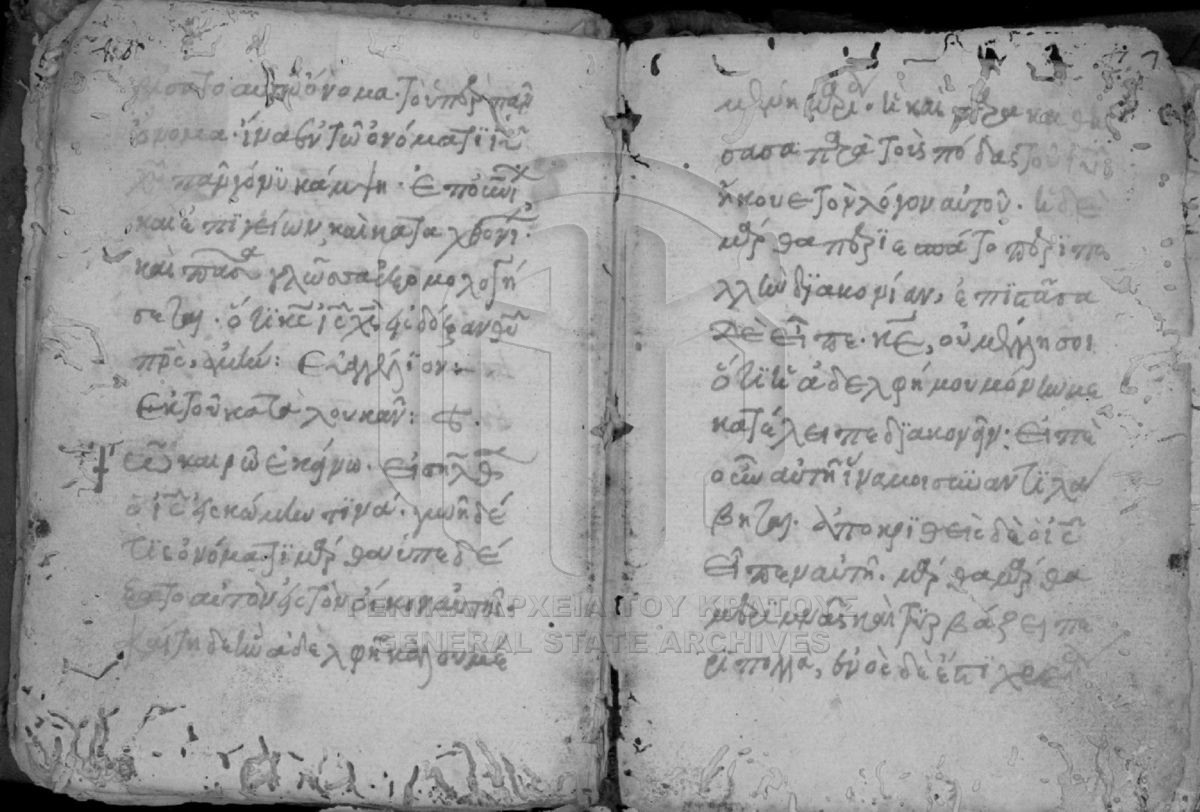 ρίσατο αὐτῶ ὄνομα· τὸ ὑπὲρ πᾶν
ὄνομα· ἵνα ἐν τῶ ὀνόματι ἰῦ
χῦ πᾶν γόνυ κάμψη· ἐπουνίων
καὶ ἐπϊγείων, καὶ καταχθονί·
καὶ πᾶσα γλῶσσα ἐξομολογή
σεται· ὅτι κς ἰς χς εἰς δόξαν θῦ
πρς, ἀμήν: Εὐαγγέλϊον:
Εκ τοῦ κατὰ λουκᾶν:
τῶ καιρῶ ἐκείνω· εἰσῆλθεν
ὁ ἰς εἰς κώμην τϊνά· γυνὴ δέ
τϊς ὀνόματϊ μάρθα ὑπεδέ
ξατο αὐτὸν εἰς τὸν οἶκον αὐτῆς·
καὶ τῆδε ἦν ἀδελφὴ καλουμέ
νη μαρία· ἣ καὶ παρακαθή
σασα παρὰ τοὺς πόδας τοῦ ἰῦ
ἤκουε τὸν λόγον αὐτοῦ· ἡ δὲ
μάρθα περϊεσπάτο περϊ πο
λλὴν δϊακονίαν, ἐπϊστᾶσα
δὲ εἶπε· κε, οὐ μέλλει σοι
ὅτϊ ἡ ἀδελφή μου μόνην με
κατέλειπε δϊακονεῖν: εἰπὲ
οὖν αὐτῆ ἵνα μοι συναντϊλά
βηται· ἀποκρϊθεὶς δὲ ὁ ἰς
εἶπεν αὐτῆ· μάρθα μάρθα
μεριμνᾶς καὶ τϋρβάζει πε
ρὶ πολλά, ἑνὸς δὲ ἐστϊ χρεία
ΓΕΝΙΚΑ ΑΡΧΕΙΑ ΤΟΥ ΚΡΑΤΟΥΣ
GENERAL STATE ARCHIVES